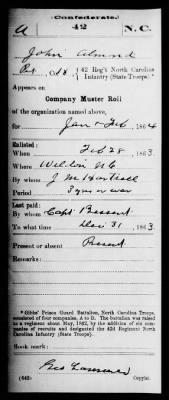 (Confederate.)
A 42 N.C.
John Almond
Pvt, Co. A, 42 Reg't North Carolina
Infantry (State Troops).*
Appears on
Company Muster Roll
of the organization named above,
for Jan & Feb, 1864.
Enlisted:
When Feb 28, 1863.
Where Wilson NC
By whom J M Hartsell
Period 3 yrs or war
Last paid:
By whom Capt
To what time Dec 31, 1863.
Present or absent Present
Remarks:
*Gibbs' Prison Guard Battalion, North Carolina Troops,
consisted of four companies, A to D. The battalion was raised
to a regiment about May, 1862, by the addition of six companies
of recruits and designated the 42d Regiment North
Carolina Infantry.
Book mark:
Geo
(642) Copyist.